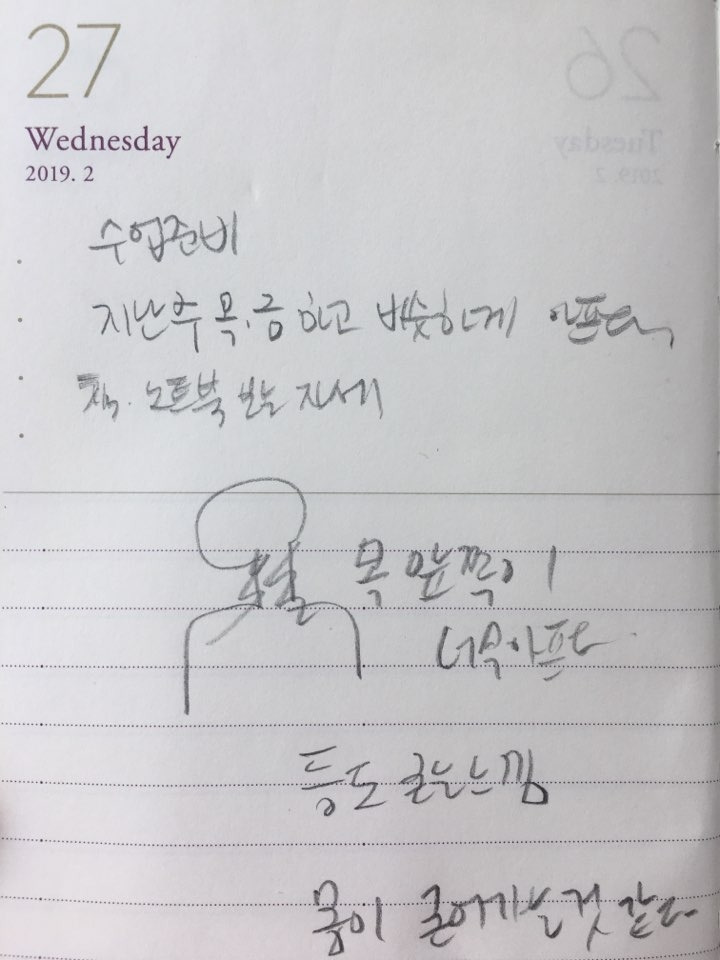 27
26
Wednesday
Tuesday
2019. 2
2019. 2
수업준비
지난주 목.금 하고 비슷하게 아프다.
책. 노트북 보는 자세
목 앞쪽이
너무아프다.
등도 굳는느낌
몸이 굳어